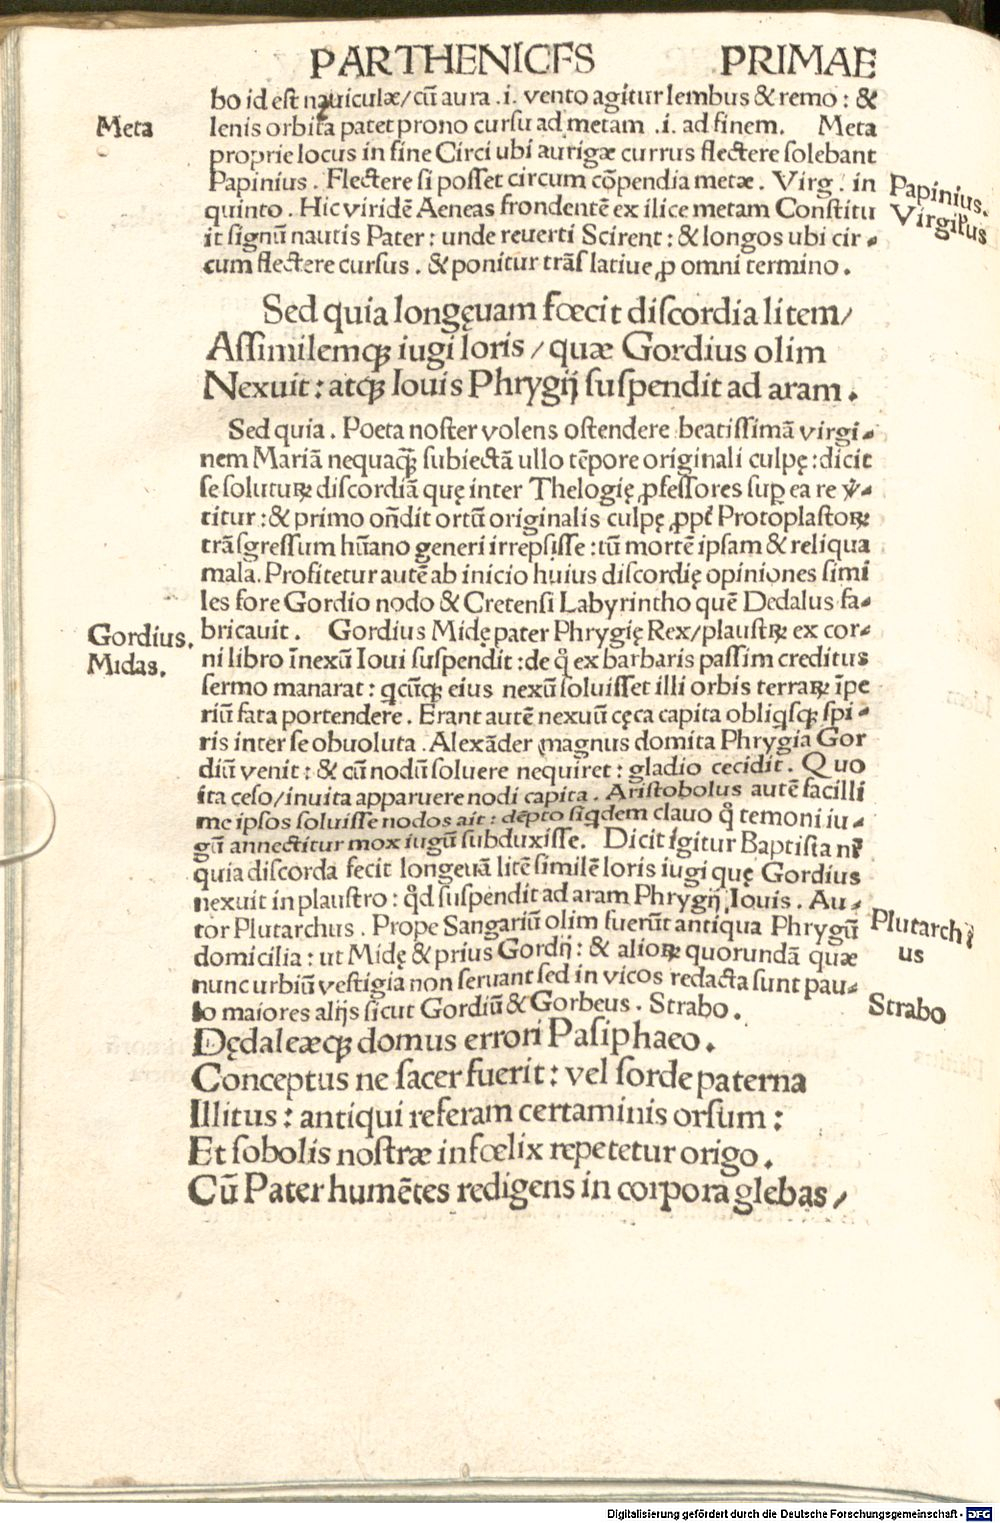 PARTHENICES PRIMAE
bo id est nauiculæ/cū aura .i. vento agitur lembus & remo: &
Meta
lenis orbita patet prono cursu ad metam .i. ad finem. Meta
proprie locus in fine Circi ubi aurigæ currus flectere solebant
Papinius. Flectere si posset circum cōpendia metæ. Virg. in
Papinius.
Virgilius
quinto. Hic viridē Aeneas frondentē ex ilice metam Constitu
it signū nautis Pater: unde reuerti Scirent: & longos ubi cir-
cum flectere cursus. & ponitur trāslatiue ꝓ omni termino.
Sed quia longęuam fœcit discordia litem/
Assimilemqꝫ iugi loris/quæ Gordius olim
Nexuit: atqꝫ Iouis Phrygij suspendit ad aram.
Sed quia. Poeta noster volens ostendere beatissimā virgi-
nem Mariā nequaqꝫ subiectā ullo tēpore originali culpę: dicit
se soluturꝫ discordiā quę inter Thelogię ꝓfessores suꝑ ea re v̄-
titur: & primo on̄dit ortū originalis culpę ꝓpt̄ Protoplastoꝝ
trāsgressum hūano generi irrepsisse: tū mortē ipsam & reliqua
mala. Profitetur autē ab inicio huius discordię opiniones simi
les fore Gordio nodo & Cretensi Labyrintho quē Dedalus fa-
Gordius.
Midas.
bricauit. Gordius Midę pater Phrygię Rex/plaustꝝ ex cor-
ni libro īnexū Ioui suspendit: de q̊ ex barbaris passim creditus
sermo manarat: qcūqꝫ eius nexū soluisset illi orbis terraꝝ īpe
riū fata portendere. Erant autē nexuū cęca capita obliqsqꝫ spi-
ris inter se obuoluta. Alexāder magnus domita Phrygia Gor
diū venit: & cū nodū soluere nequiret: gladio cecidit. Quo
ita ceso/inuita apparuere nodi capita. Aristobolus autē facilli
me ipsos soluisse nodos ait: dēpto siqdem clauo q̊ temoni iu-
gū annectitur mox iugū subduxisse. Dicit igitur Baptista nr̄
quia discorda fecit longeuā litē similē loris iugi quę Gordius
nexuit in plaustro: q̊d suspendit ad aram Phrygij Iouis. Au-
Plutarchi
us
tor Plutarchus. Prope Sangariū olim fuerūt antiqua Phrygū
domicilia: ut Midę & prius Gordij: & alioꝝ quorundā quæ
nunc urbiū vestigia non seruant sed in vicos redacta sunt pau-
Strabo
lo maiores alijs sicut Gordiū & Gorbeus. Strabo.
Dędaleæqꝫ domus errori Pasiphaeo.
Conceptus ne sacer fuerit: vel sorde paterna
Illitus: antiqui referam certaminis orsum:
Et sobolis nostræ infœlix repetetur origo.
Cū Pater humētes redigens in corpora glebas/
Digitalisierung gefördert durch die Deutsche Forschungsgemeinschaft - DFG